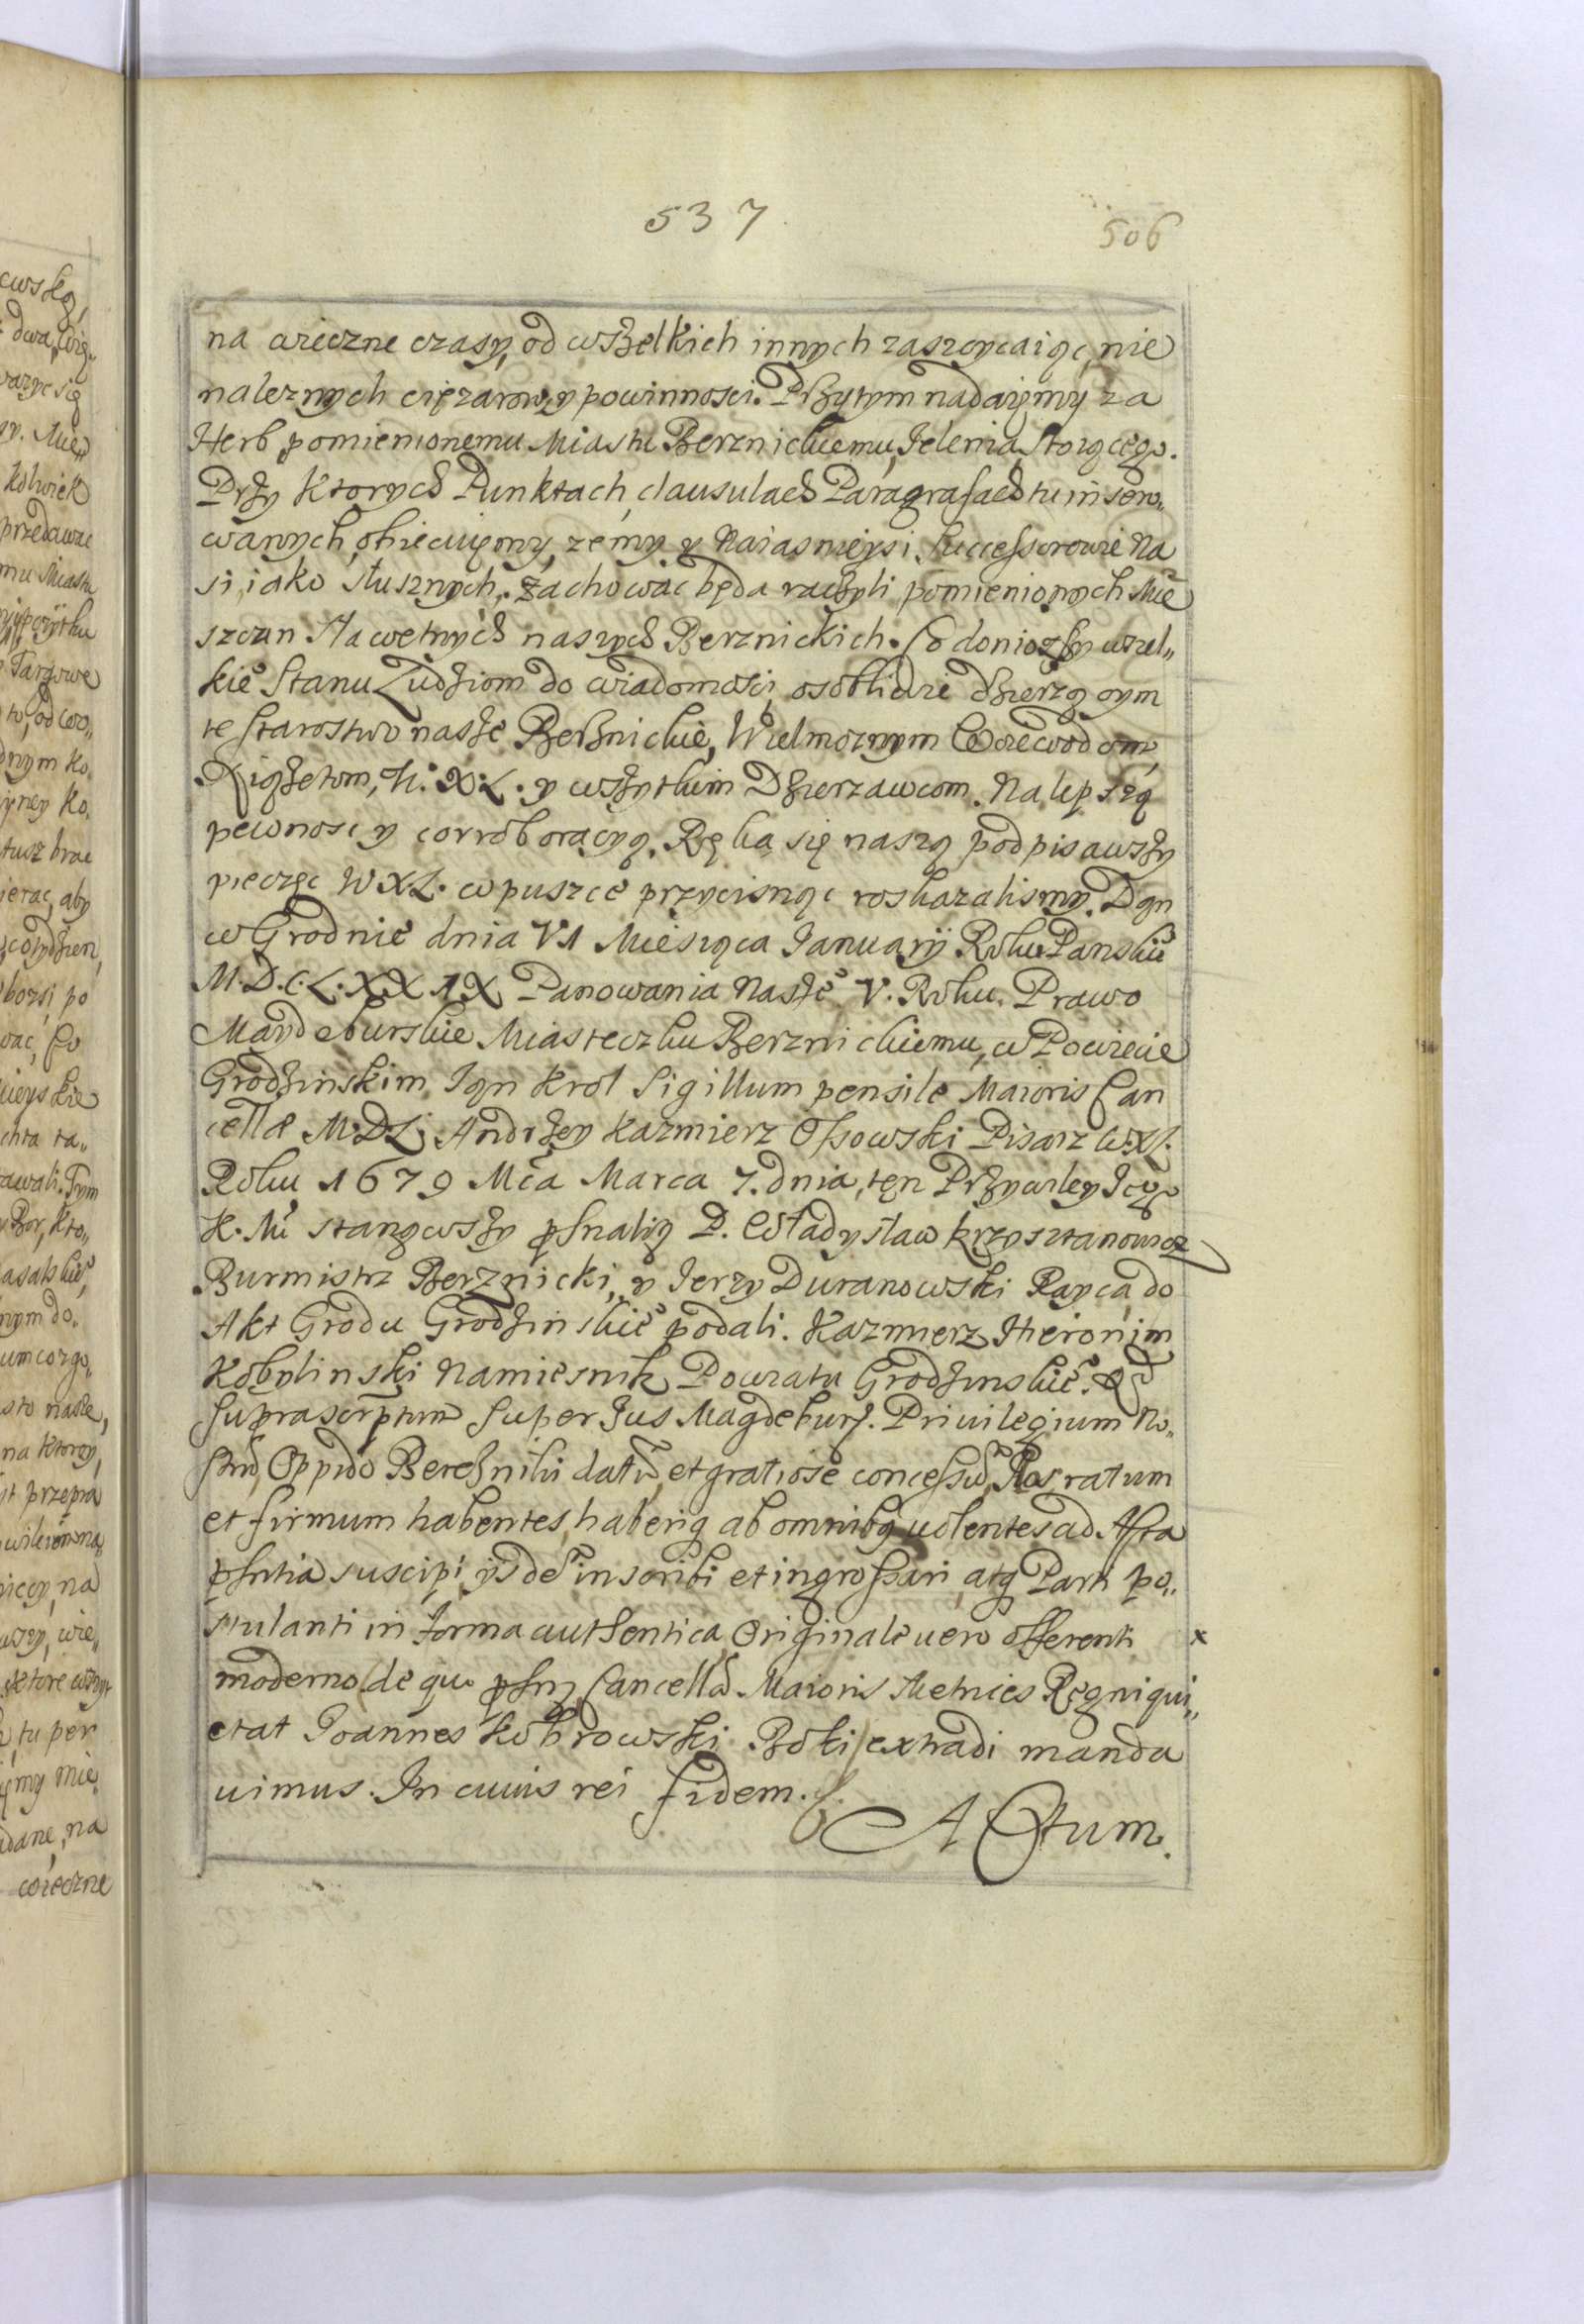 537
506
na wieczne czasy, od wszelkich innych zaszczycaiąc, nie
należnych ciężarow, y powinnosci. Przytym nadaięmy za
Herb pomienionemu Miastu Berznickiemu, Jelenia Stoiącego.
Przy ktorych Punktach, clausulach Paragrafach tu insero„
wanych, obiecuięmy, że my y Naiasnieysi Successorowie Na
si, iako słusznych, zachowac będą raczyli pomienionych Mie
szczan Sławetnych naszych Berznickich. Co doniozszy wszel„
kie͂ Stanu Ludziom do wiadomosci, osobliwie dzierzącym
te starostwo nasze Berznickie, Wielmoznym Woiewodom,
Xiążętom, W. X. L. y wszytkim Dzierzawcom. Na lepszą
pewnosc y corroboracyą. Ręką się naszą podpisawszy
pieczęc W X. L. w puszce przycisnąc roskazalismy. Dan
w Grodnie dnia VI Miesiąca Januarij Roku Panskie͂
M. D. C. L. XX IX Panowania Nasze͂ V. Roku. Prawo
Maydeburskie Miasteczku Berznickiemu, w Powiecie
Grodzinskim Jan Krol Sigillum pensile Maioris Can
cellæ M. D. L. Andrzey Kazmierz Ossowski Pisarz W. X. L.
Roku 1679 Mca Marca 7. dnia, ten Przywiley Jego
K. Mi stanąwszy Władysław Krzysztanowicz
Burmistrz Berznicki, y Jerzy Duranowski Rayca, do
Akt Grodu Grodzinskie͂ podali. Kazmierz Hieronim
Kobylinski Namiesnik Powiatu Grodzinskie͂.
Suprascriptum super Jus Magdeburg. Privilegium No„
strũ, Oppido Bereznikі datũ, et gratiose concessũ, Nos ratum
et firmum habentes, haberiq ab omnibq uolentes ad Acta
pſntia suscipi, ijsdẽ inscribi et ingrossari atq Parti po„
stulanti in forma authentica, Originale uero offerenti x
moderno (de quo Cancellã Maioris Metrices Regni qui„
etat Joannes Kobrowski Boki) extradi manda
uimus. In cuius rei fidem.
Actum.